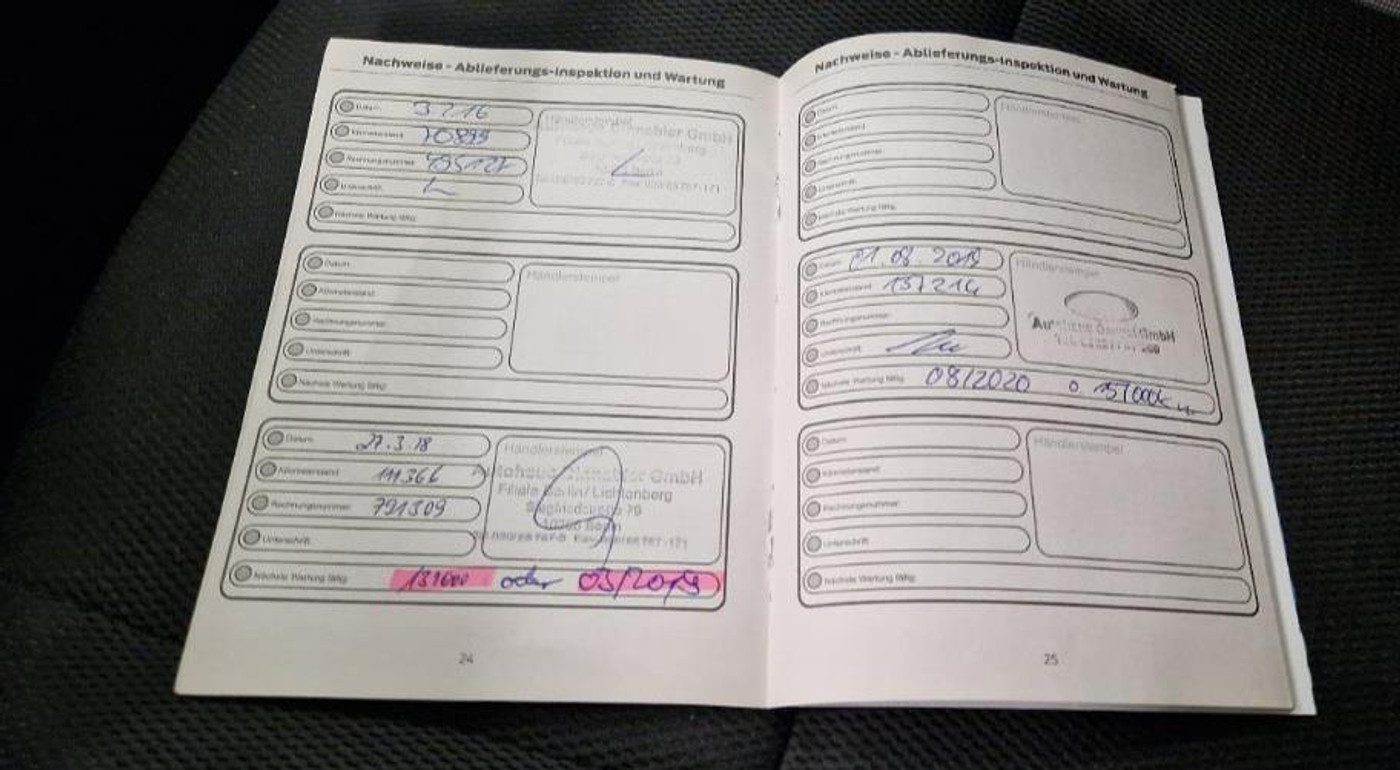 Nachweise - Ablieferungs-Inspektion und Wartung
Datum 3.7.16
Kilometerstand 70899
Rechnungsnummer
Unterschrift
Nächste Wartung fällig:
Händlerstempel
GmbH
Datum
Kilometerstand
Rechnungsnummer
Unterschrift
Nächste Wartung fällig:
Händlerstempel
Datum 27.3.18
Kilometerstand 111366
Rechnungsnummer 791309
Unterschrift
Nächste Wartung fällig: 131600 oder 03/2019
Händlerstempel
Autohaus GmbH
Filiale Berlin/Lichtenberg
Siegfriedstraße 79
Berlin
24
Nachweise - Ablieferungs-Inspektion und Wartung
Datum
Kilometerstand
Rechnungsnummer
Unterschrift
Nächste Wartung fällig:
Händlerstempel
Datum 01.08.2019
Kilometerstand 137214
Rechnungsnummer
Unterschrift
Nächste Wartung fällig: 08/2020 o 157000km
Händlerstempel
Autohaus GmbH
Datum
Kilometerstand
Rechnungsnummer
Unterschrift
Nächste Wartung fällig:
Händlerstempel
25